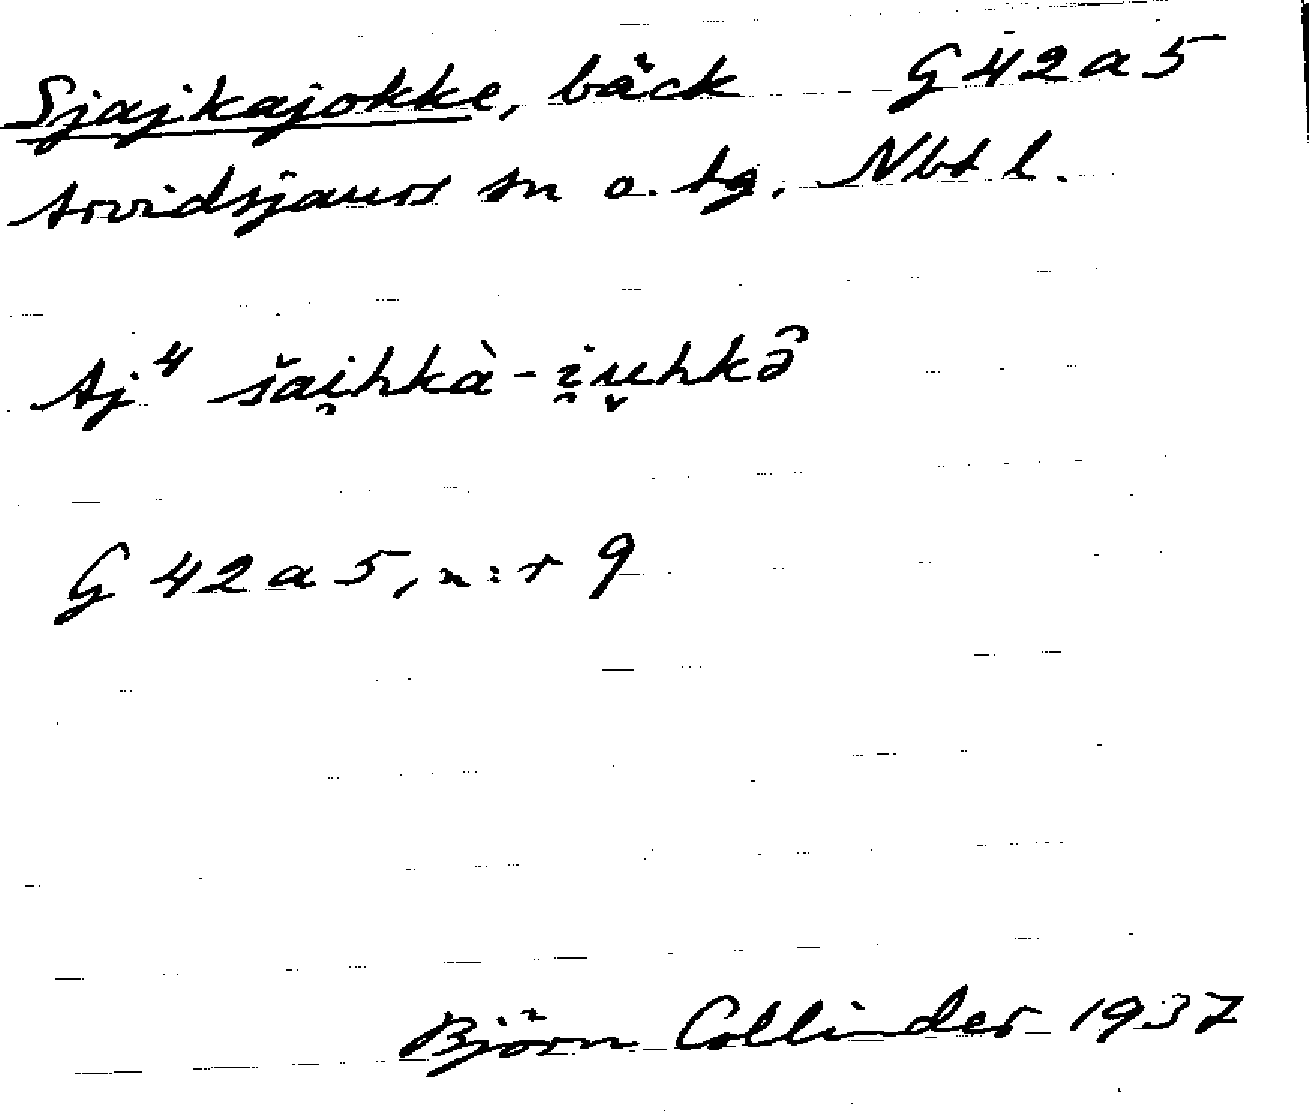 Sjajkajokke, bäck G 42 a 5
Arvidsjaurs sn o. tg. Nbt l.
Aj⁴ šai̯hkà-i̯u̯hkə̑
G 42 a 5, n:r 9
Björn Collinder 1937